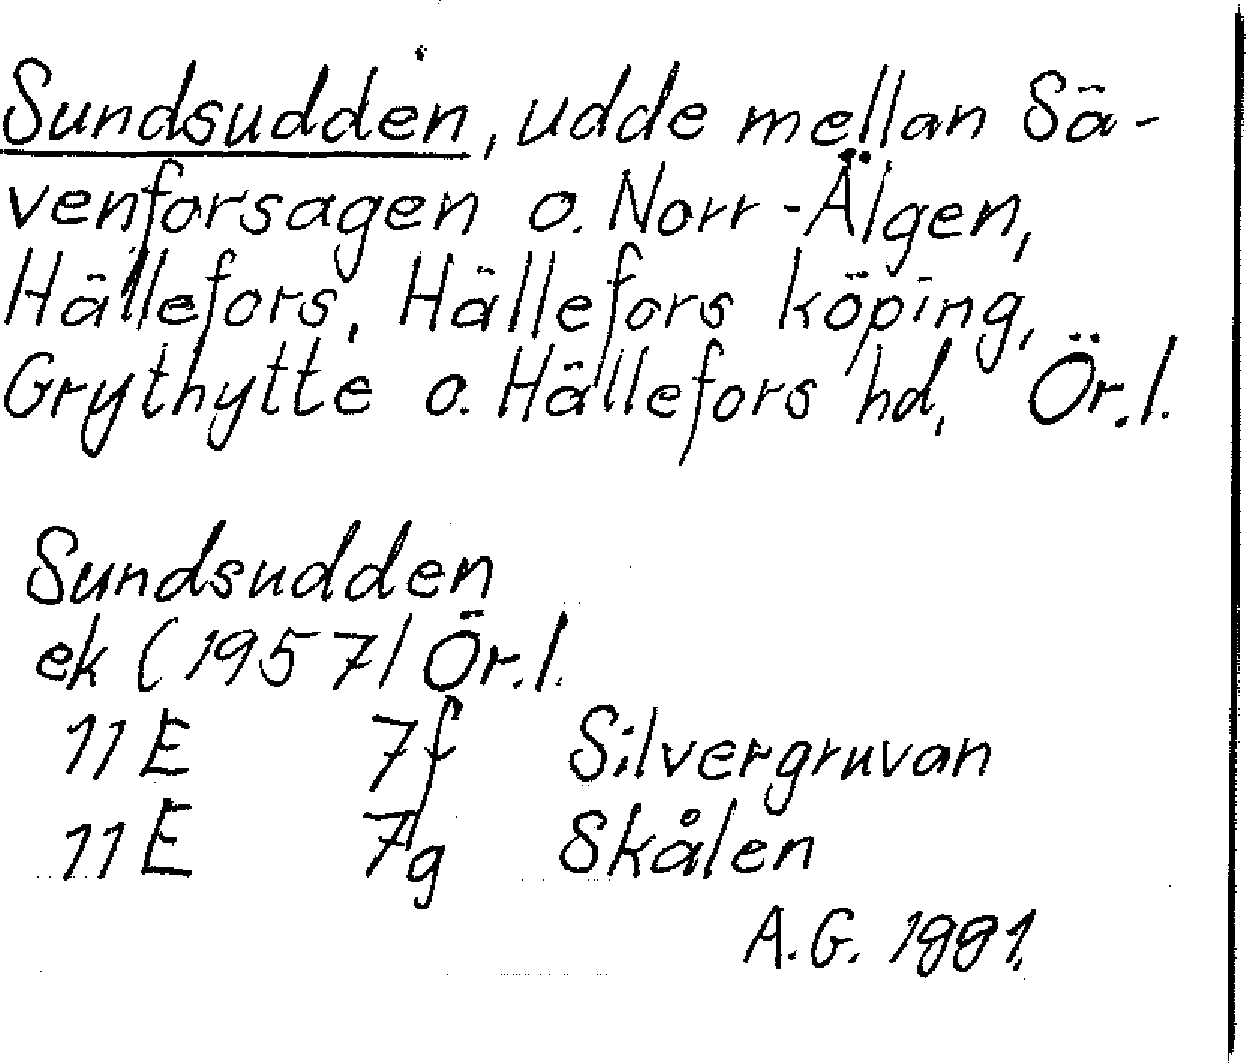 Sundsudden, udde mellan Sä-
venforsagen o. Norr-Älgen,
Hällefors, Hällefors köping,
Grythytte o. Hällefors hd, Ör.l.
Sundsudden
ek (1957) Ör.l.
11E 7f Silvergruvan
11E 7g Skålen
A.G. 1991.